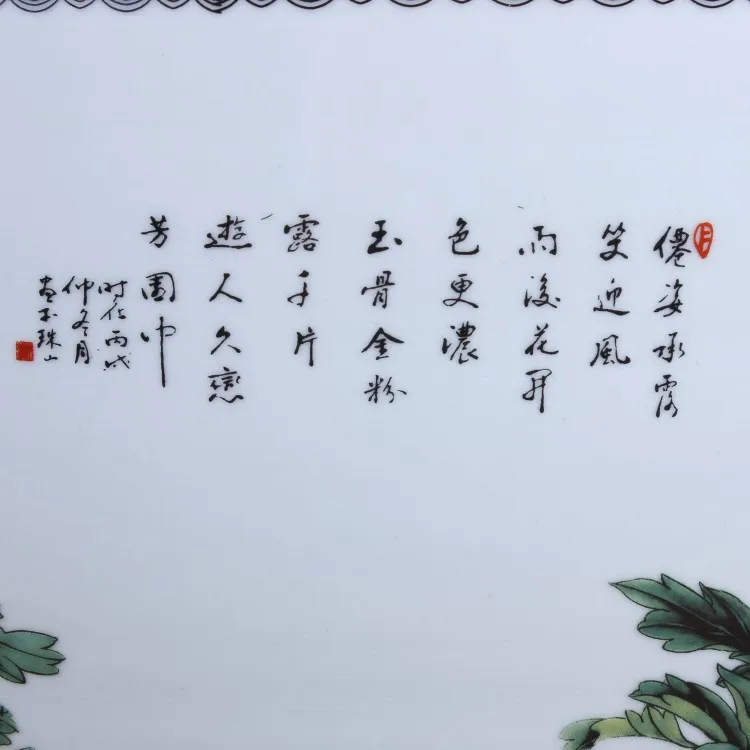 僊姿承露
笑迎風
雨後花開
色更濃
玉骨金粉
露千片
遊人久戀
芳園中
时在丙戌
仲冬月
畫于珠山